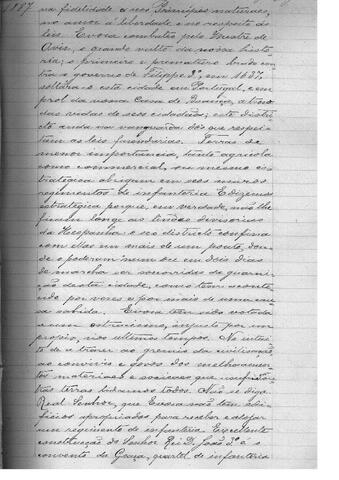 187
na fidelidade a seus Principes naturaes,
no amor á liberdade e no respeito ás
leis. Evora combateu pelo Mestre de
Aviz, o grande vulto da nossa histo-
ria; o primeiro e prematuro brado con-
tra o governo de Filippe 3º, em 1637,
soltára-o esta cidade, em Portugal, e em
prol da nossa Casa de Bragança, a troco
das vidas de seus cidadãos; este distri-
cto ainda na vanguarda dos que respei-
tam as leis fazendarias. Terras de
menor importancia, tanto agricola
como commercial, ou mesmo es-
trategica abrigam em seus muros
regimentos de infanteria. E dizemos
estrategica porque, em verdade, não lhe
ficam longe as linhas divisorias
da Hespanha e seu districto confina
com ellas em mais de um ponto, don-
de o poderam num ou em dois dias
de marcha ser soccorridas da guarni-
ção desta cidade, como tem aconte-
cido por vezes e por mais de uma cau-
sa sabida. Evora tem sido votada
a um ostracismo, injusto por im-
proprio, nos ultimos tempos. No intui-
to de a trazer ao gremio da civilisação,
ao convivio e gosos dos melhoramen-
tos materiaes e sociaes que
outras terras lidamos todos. Não se diga
Real Senhor, que Evora não tem edi-
ficios apropriados para receber e alojar
um regimento de infanteria. Excellente
construcção do Senhor Rei D. João 3º é o
convento da Graça, quartel de infanteria